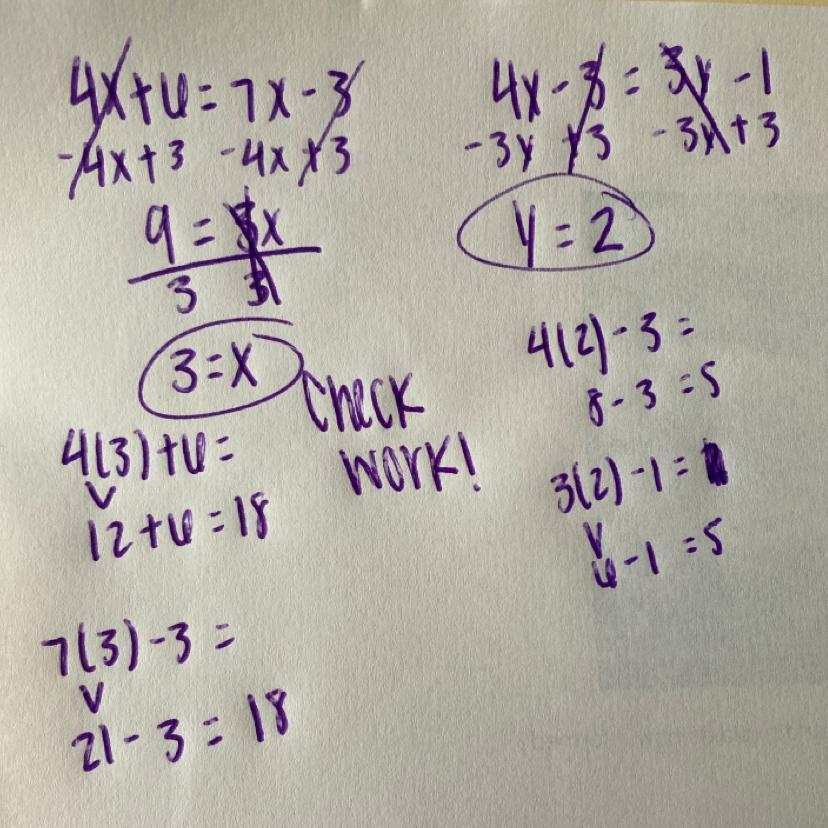 4x+6=7x-3
-4x+3 -4x+3
9=3x
3 3
3=x
Check
work!
4(3)+6=
12+6=18
7(3)-3=
21-3=18
4y-3=3y-1
-3y +3 -3y+3
y=2
4(2)-3=
8-3=5
3(2)-1=
6-1=5